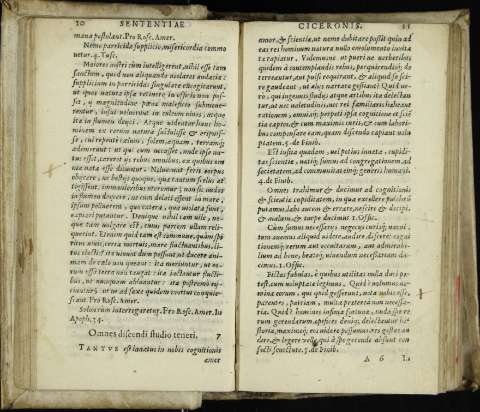 10 SENTENTIAE
mana postulant. Pro Rosc. Amer.
Nemo parricidæ supplicio, misericordia commo
uetur. 4. Tusc.
Maiores nostri cum intelligerent, nihil esse tam
sanctum, quod non aliquando violaret audacia:
supplicium in parricidas singulare excogitarunt,
ut quos natura ipsa retinere in officio non potuis-
set, magnitudine pœnæ maleficio submoue-
rentur, insui voluerunt in culeum viuos, atque
ita in flumen deijci. Atque videantur hunc ho-
minem ex rerum natura sustulisse & eripuis-
se, cui repente cœlum, solem, aquam, terramq́;
ademerunt: ut qui eum necasset, unde ipse na-
tus esset, careret ijs rebus omnibus, ex quibus om-
nia nata esse dicuntur. Noluerunt feris corpus
obijcere, ne bestijs quoque, quæ tantum scelus at-
tigissent, immanioribus uteremur; non sic nudos
in flumen deijcere, ne cum delati essent in mare,
ipsum polluerent, quo cætera, quæ violata sunt,
expiari putantur. Denique nihil tam vile, ne-
que tam uulgare est, cuius partem ullam reli-
querint. Etenim quid tam est commune, quàm spi
ritus viuis, terra mortuis, mare fluctuantibus, li-
tus eiectis? ita viuunt dum possunt ut ducere ani-
mam de cœlo non queant: ita moriuntur, ut eo-
rum ossa terra non tangat: ita iactantur flucti-
bus, ut nunquam abluantur: ita postremò eij-
ciuntur, ut ne ad saxa quidem mortui conquie-
scant. Pro Rosc. Amer.
Solonem interrogaret. Pro Rosc. Amer. In
Apoph. 34.
Omnes discendi studio teneri. 7
TANTVS est innatus in nobis cognitionis
amor
CICERONIS. 11
amor, & scientiæ, ut nemo dubitare possit quin ad
eas res hominum natura nullo emolumento inuita
ta rapiatur. Videmusne ut pueri ne verberibus
quidem à contemplandis rebus, perquirendisq́; de
terreantur, aut pulsi requirant, & aliquid se sci-
re gaudeant, ut alijs narrare gestiant? Quid ve-
ro, qui ingenuis studijs atque artibus delectan-
tur, nec valetudinis, nec rei familiaris habent
rationem, omniaq́; perpeti ipsa cognitione et scien
tia captos, & cum maximis curis, & cum laborib-
bus compensare eam, quam discendo capiunt volu
ptatem. 5. de Finib.
Est insita quædam, uel potius innata, cupidi-
tas scientiæ, natiq́; sumus ad congregationem, ad
societatem, ad communitatemq́; generis humani.
4. de Finib.
Omnes trahimur & ducimur ad cognitionis
& scientiæ cupiditatem, in qua excellere pulchrū
putamus, labi autem & errare, nescire & decipi,
& malum, & turpe ducimus. 1. Offic.
Cum sumus necessarijs negocijs curisq́; vacui,
tum auemus aliquid videre, audire, discere: cogni
tionemq́; rerum aut occultarum, aut admirabi-
lium ad bene, beateq́; viuendum necessariam du-
cimus. 1. Offic.
Fictas fabulas, è quibus utilitas nulla duci po-
test, cum voluptate legimus. Quid? volumus no-
mina eorum, qui quid gesserint, nota nobis esse,
parentes, patriam, multa præterea non necessa-
ria. Quid? homines infima fortuna, nulla spe re
rum gerendarum, opifices deniq́; delectantur hi-
storia, maximeq́; eos uidere possumus res gestas au
dire, & legere velle, qui à spe gerendi absunt con
fecti senectute. 5. de Finib.
A 6